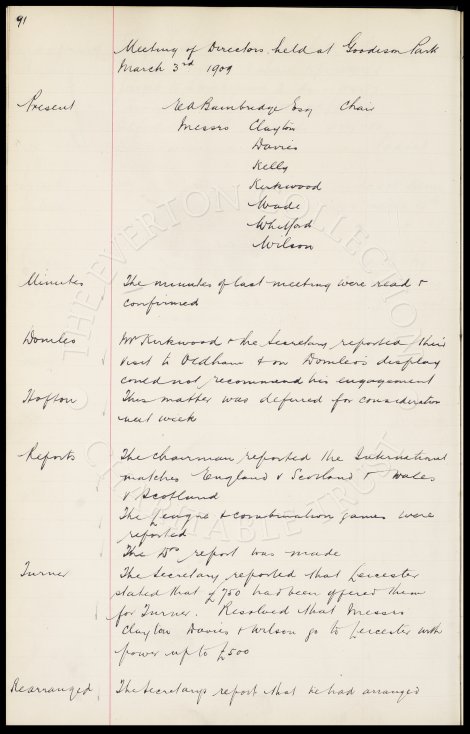 91
Meeting of Directors held at Goodison Park
March 3rd 1909
Present W.A. Bainbridge Esq Chair
Messrs Clayton
Davies
Kelly
Kirkwood
Wade
Whitford
Wilson
Minutes The minutes of last meeting were read &
confirmed
Mr Kirkwood & the Secretary reported their
visit to Oldham & on display
could not recommend his engagement
Hofton This matter was deferred for consideration
next week
Reports The chairman reported the International
matches England v Scotland & Wales
v Scotland
The League & combination games were
reported
The Drs report was made
Turner The Secretary reported that Leicester
stated that £750 had been offered them
for Turner. Resolved that Messrs
Clayton Davies & Wilson go to Leicester with
power up to £500
Rearranged The Secretarys report that he had arranged
THE EVERTON COLLECTION
CHARITABLE TRUST